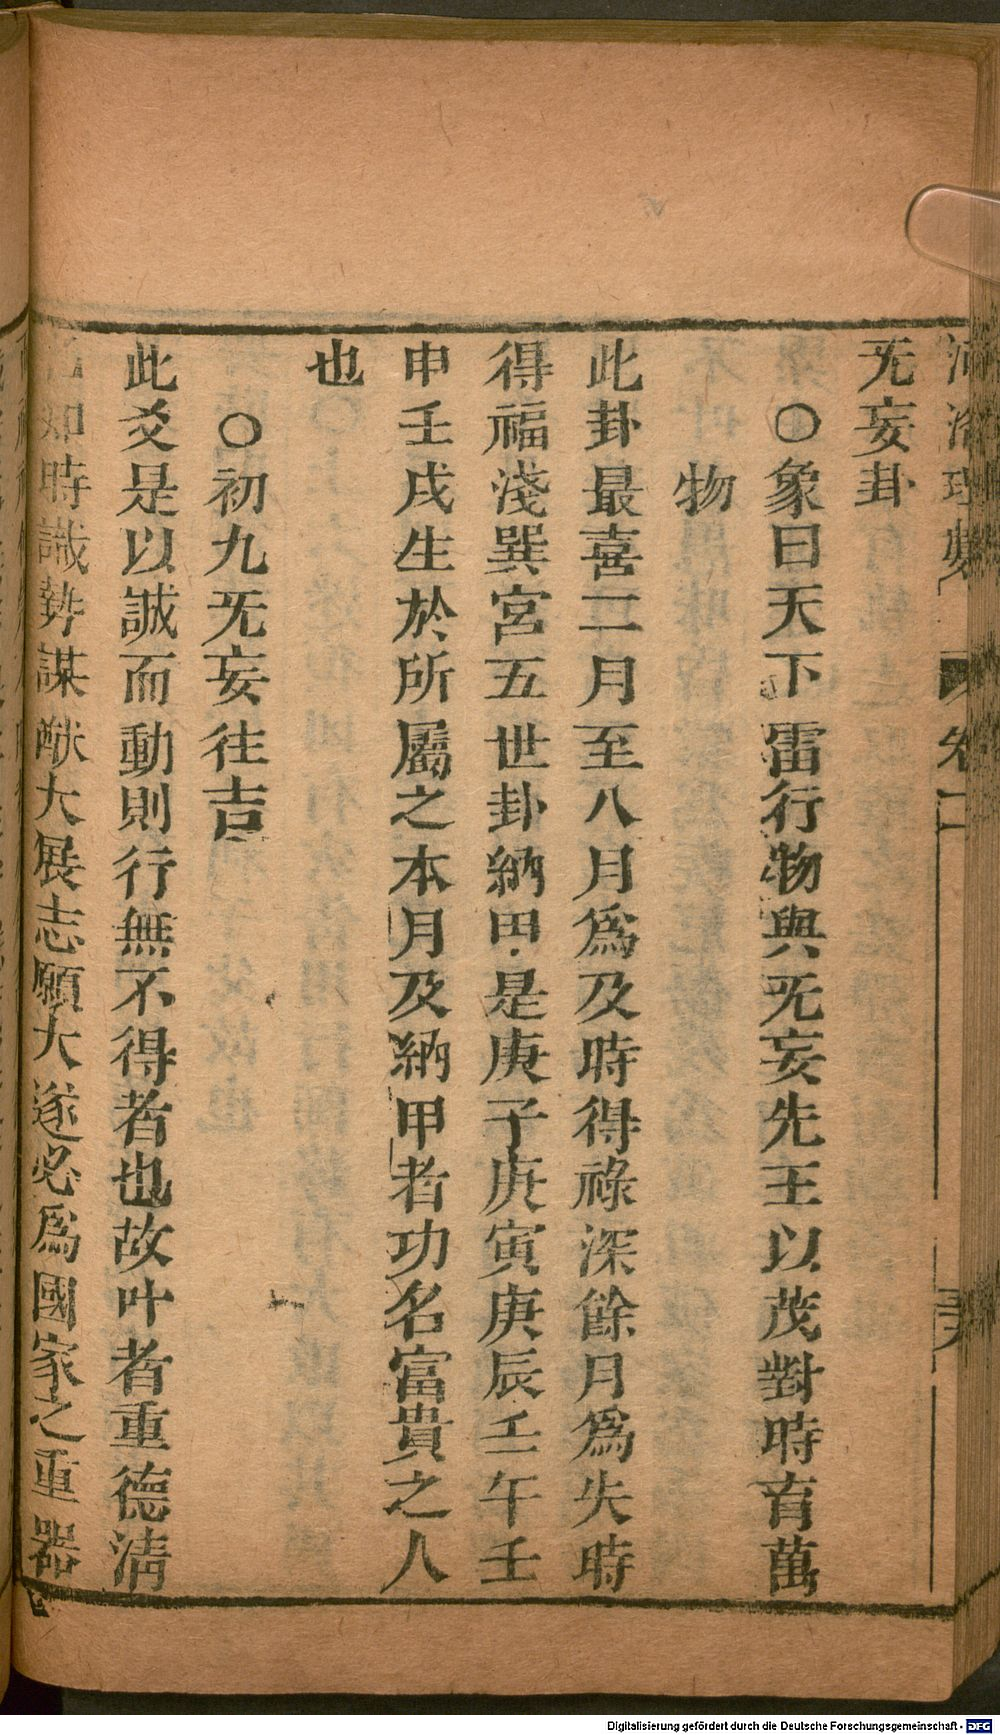 无妄卦
○象曰天下雷行物與无妄先王以茂對時育萬
物
此卦最喜二月至八月爲及時得祿深餘月爲失時
得福淺巽宮五世卦納甲是庚子庚寅庚辰壬午壬
申壬戌生於所屬之本月及納甲者功名富貴之人
也
○初九无妄往吉
此爻是以誠而動則行無不得者也故叶者重德清
時識勢謀猷大展志願大遂必爲國家之重器
Digitalisierung gefördert durch die Deutsche Forschungsgemeinschaft - DFG